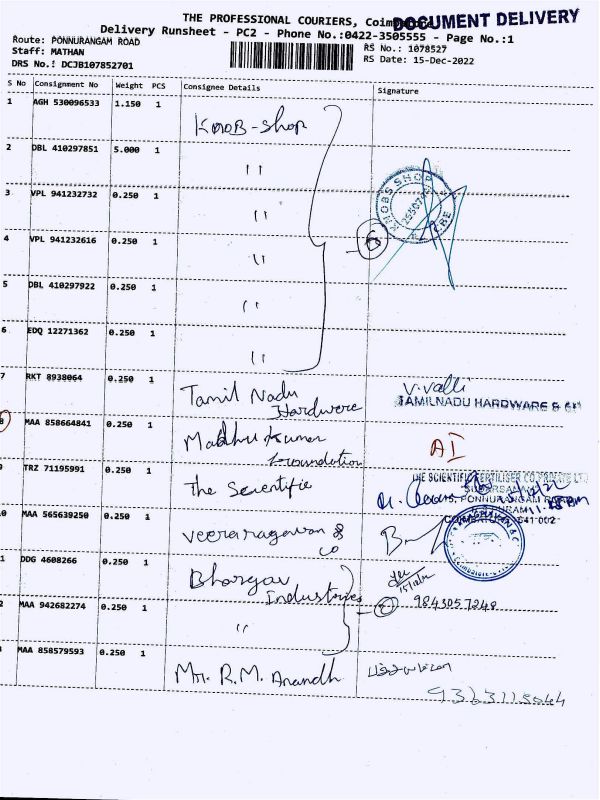 THE PROFESSIONAL COURIERS, Coimbatore
DOCUMENT DELIVERY
Delivery Runsheet - PC2 - Phone No.:0422-3505555 - Page No.:1
Route: PONNURANGAM ROAD
Staff: MATHAN
DRS No.: DCJB107852701
RS No.: 1078527
RS Date: 15-Dec-2022
S No Consignment No Weight PCS Consignee Details Signature
1 AGH 530096533 1.150 1 KnoB-shop
2 DBL 410297851 5.000 1 "
KNOBS SHOP CBE
3 VPL 941232732 0.250 1 "
4 VPL 941232616 0.250 1 " 6
5 DBL 410297922 0.250 1 "
6 EDQ 12271362 0.250 1 "
7 RKT 8938064 0.250 1 Tamil Nadu Hardware V. Valli
TAMILNADU HARDWARE &
8 MAA 858664841 0.250 1 Madhu Kumar Foundation AI
9 TRZ 71195991 0.250 1 The Scientific
THE SCIENTIFIC FERTILISER CO PRIVATE LTD
PONNURANGAM ROAD
COIMBATORE 641 002
0 MAA 565639250 0.250 1 Veeraragavan & co
1 DDG 4608266 0.250 1 Bhargav Industries
15/12/22
2 MAA 942682274 0.250 1 " 2 9843057248
MAA 858579593 0.250 1 Mr. R.M. Anandh